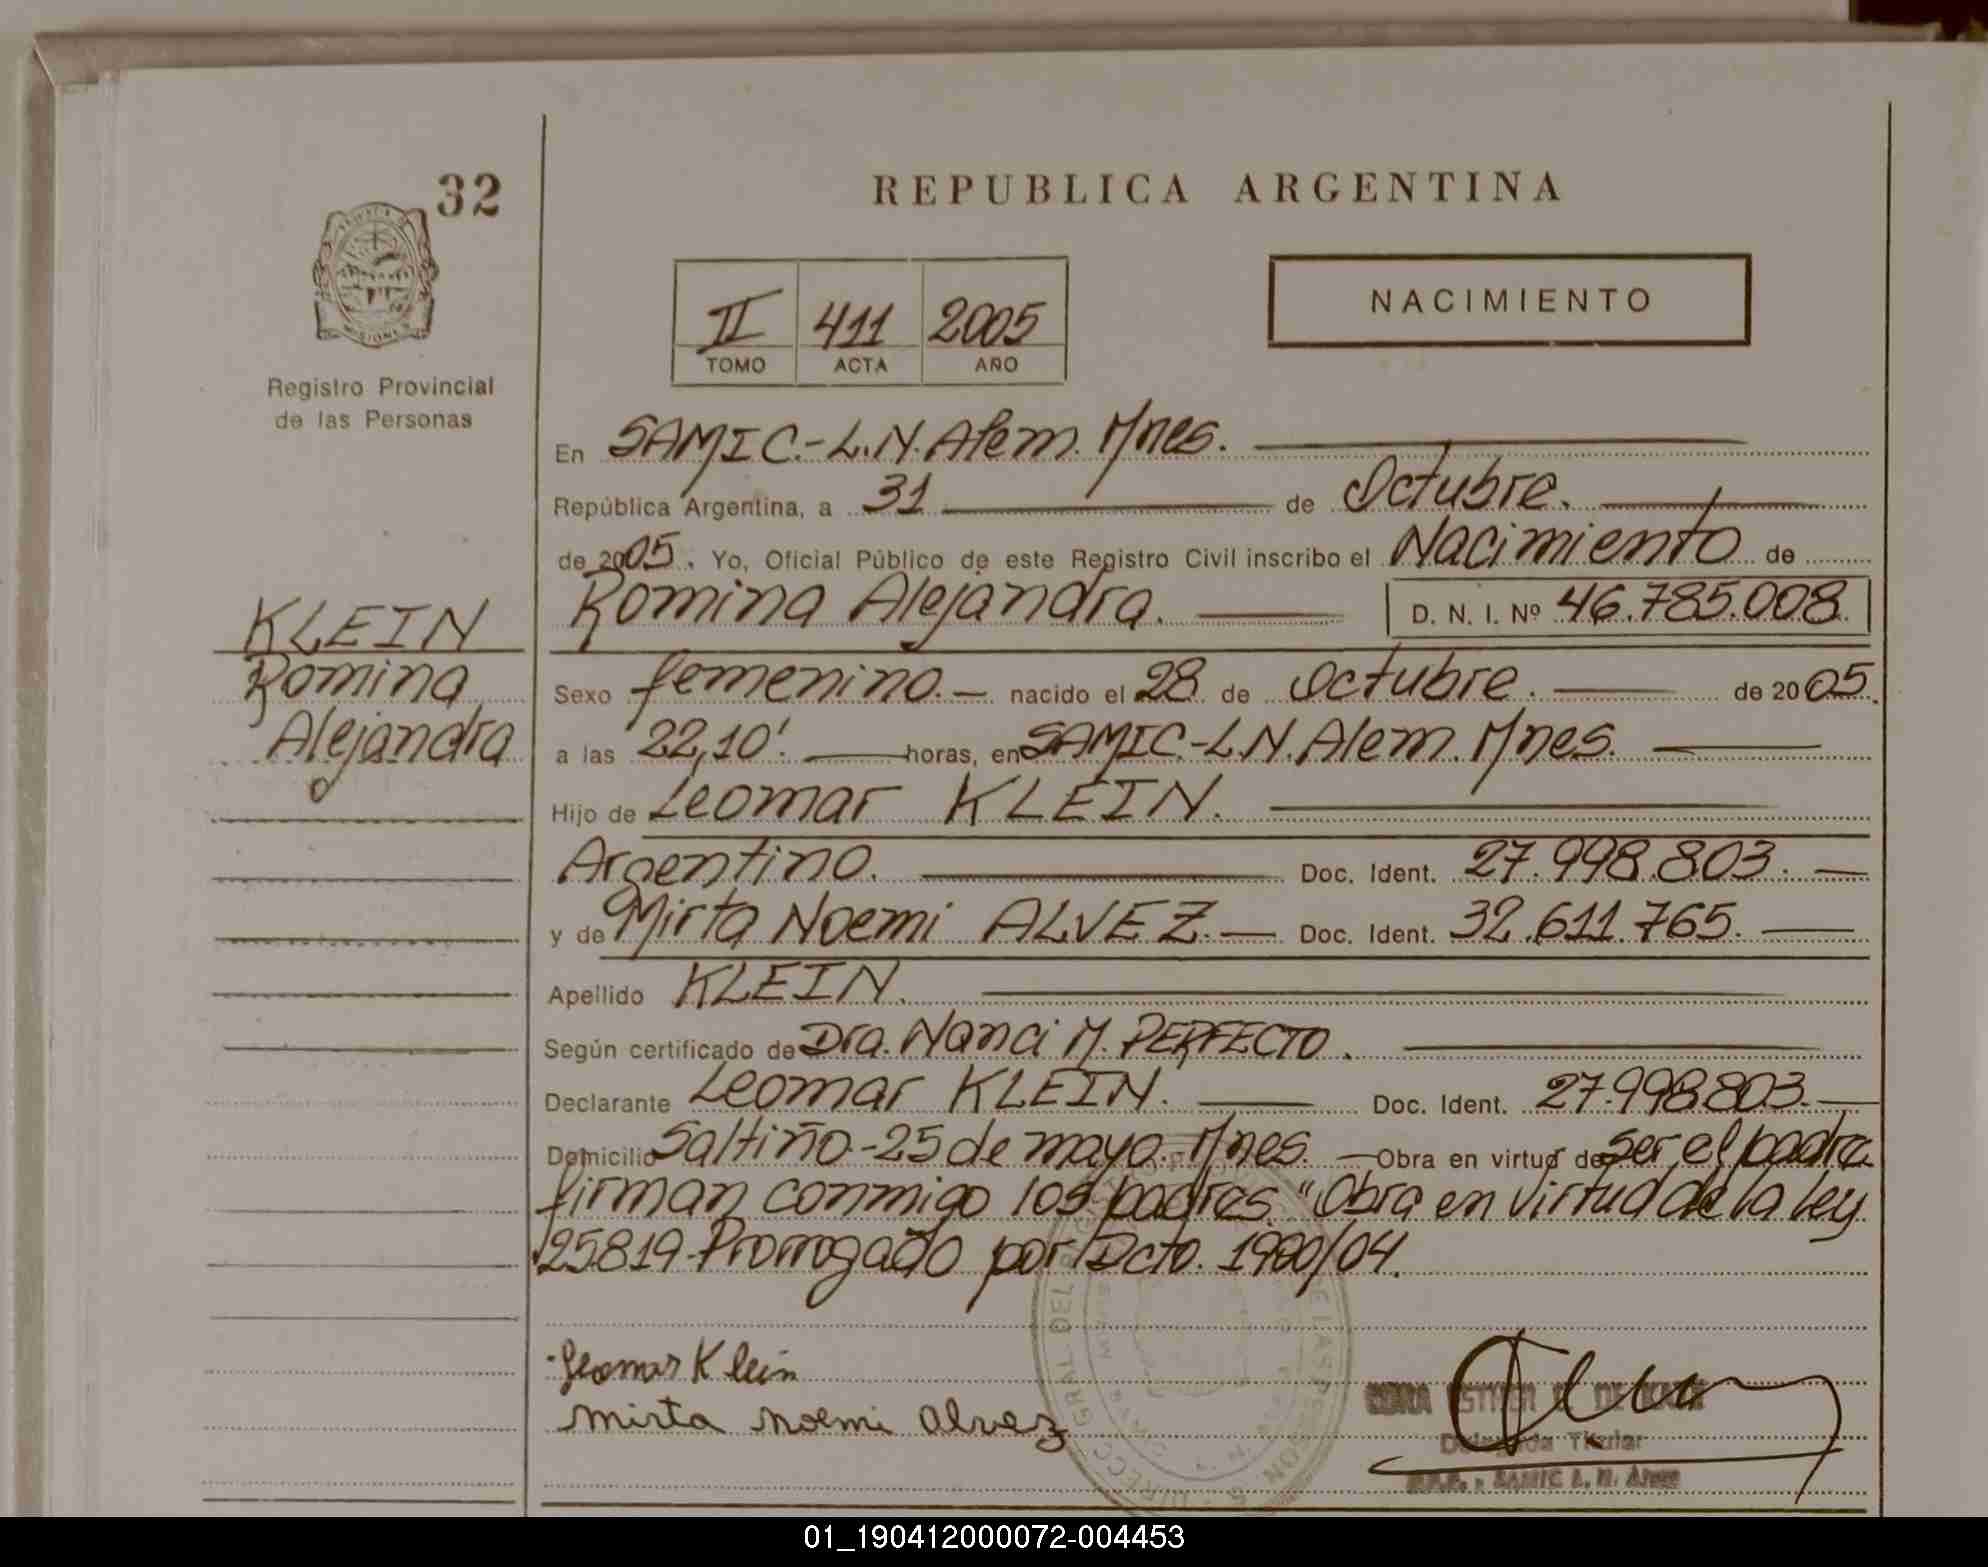 32
REPUBLICA ARGENTINA
NACIMIENTO
II 411 2005
TOMO ACTA AÑO
Registro Provincial
de las Personas
En SAMIC.-L.N.Alem. Mnes.
República Argentina, a 31 de Octubre.
de 2005. Yo, Oficial Público de este Registro Civil inscribo el Nacimiento de
Romina Alejandra. D. N. I. Nº 46.785.008
KLEIN
Romina
Alejandra
Sexo femenino.- nacido el 28 de Octubre. de 2005.
a las 22,10'. horas, en SAMIC-L.N.Alem. Mnes.
Hijo de Leomar KLEIN.
Argentino. Doc. Ident. 27.998.803.
y de Mirta Noemi ALVEZ.- Doc. Ident. 32.611.765.
Apellido KLEIN.
Según certificado de Dra. Nanci M. PERFECTO.
Declarante Leomar KLEIN. Doc. Ident. 27.998.803.
Domicilio Saltiño.-25 de mayo. Mnes. Obra en virtud de ser el padre
firman conmigo los padres. "Obra en virtud de la ley
25819-Prorrogado por Dcto.
Leomar Klein
Mirta Noemi Alvez
Delegada Titular
SAMIC L. N. Alem
01_190412000072-004453